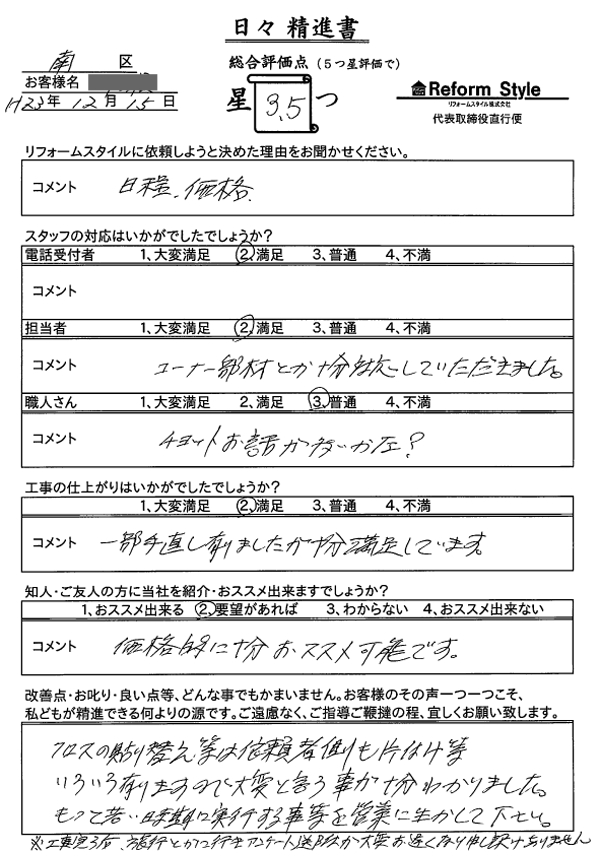 日々 精進書
南 区
総合評価点（5つ星評価で）
お客様名
H23年 12月 15日
星 3.5 つ
Reform Style
リフォームスタイル株式会社
代表取締役直行便
リフォームスタイルに依頼しようと決めた理由をお聞かせください。
コメント 日程、価格
スタッフの対応はいかがでしたでしょうか？
電話受付者 1、大変満足 2、満足 3、普通 4、不満
コメント
担当者 1、大変満足 2、満足 3、普通 4、不満
コメント コーナー部材とか十分対応していただきました。
職人さん 1、大変満足 2、満足 3、普通 4、不満
コメント チョットお話が多いかな？
工事の仕上がりはいかがでしたでしょうか？
1、大変満足 2、満足 3、普通 4、不満
コメント 一部手直し有りましたが十分満足しています。
知人・ご友人の方に当社を紹介・おススメ出来ますでしょうか？
1、おススメ出来る 2、要望があれば 3、わからない 4、おススメ出来ない
コメント 価格的に十分おススメ可能です。
改善点・お叱り・良い点等、どんな事でもかまいません。お客様のその声一つ一つこそ、
私どもが精進できる何よりの源です。ご遠慮なく、ご指導ご鞭撻の程、宜しくお願い致します。
クロスの貼り替え等は依頼者側も片付け等
いろいろ有りますので大変と言う事が十分わかりました。
もっと若い時期に実行する事等を営業に生かして下さい。
※工事完了后、旅行とかに行きアンケート送付が大変お遅くなり申し訳ありません